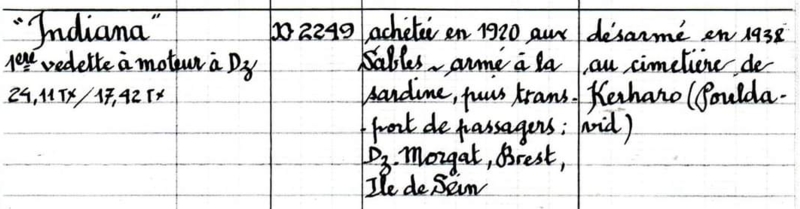 "Indiana"
1ère vedette à moteur à Dz
24,11 Tx/17,42 Tx
D 2249
achetée en 1920 aux
Sables - armé à la
sardine, puis trans-
port de passagers :
Dz. Morgat, Brest,
Ile de Sein
désarmé en 1938
au cimetière de
Kerharo (Poulda-
vid)